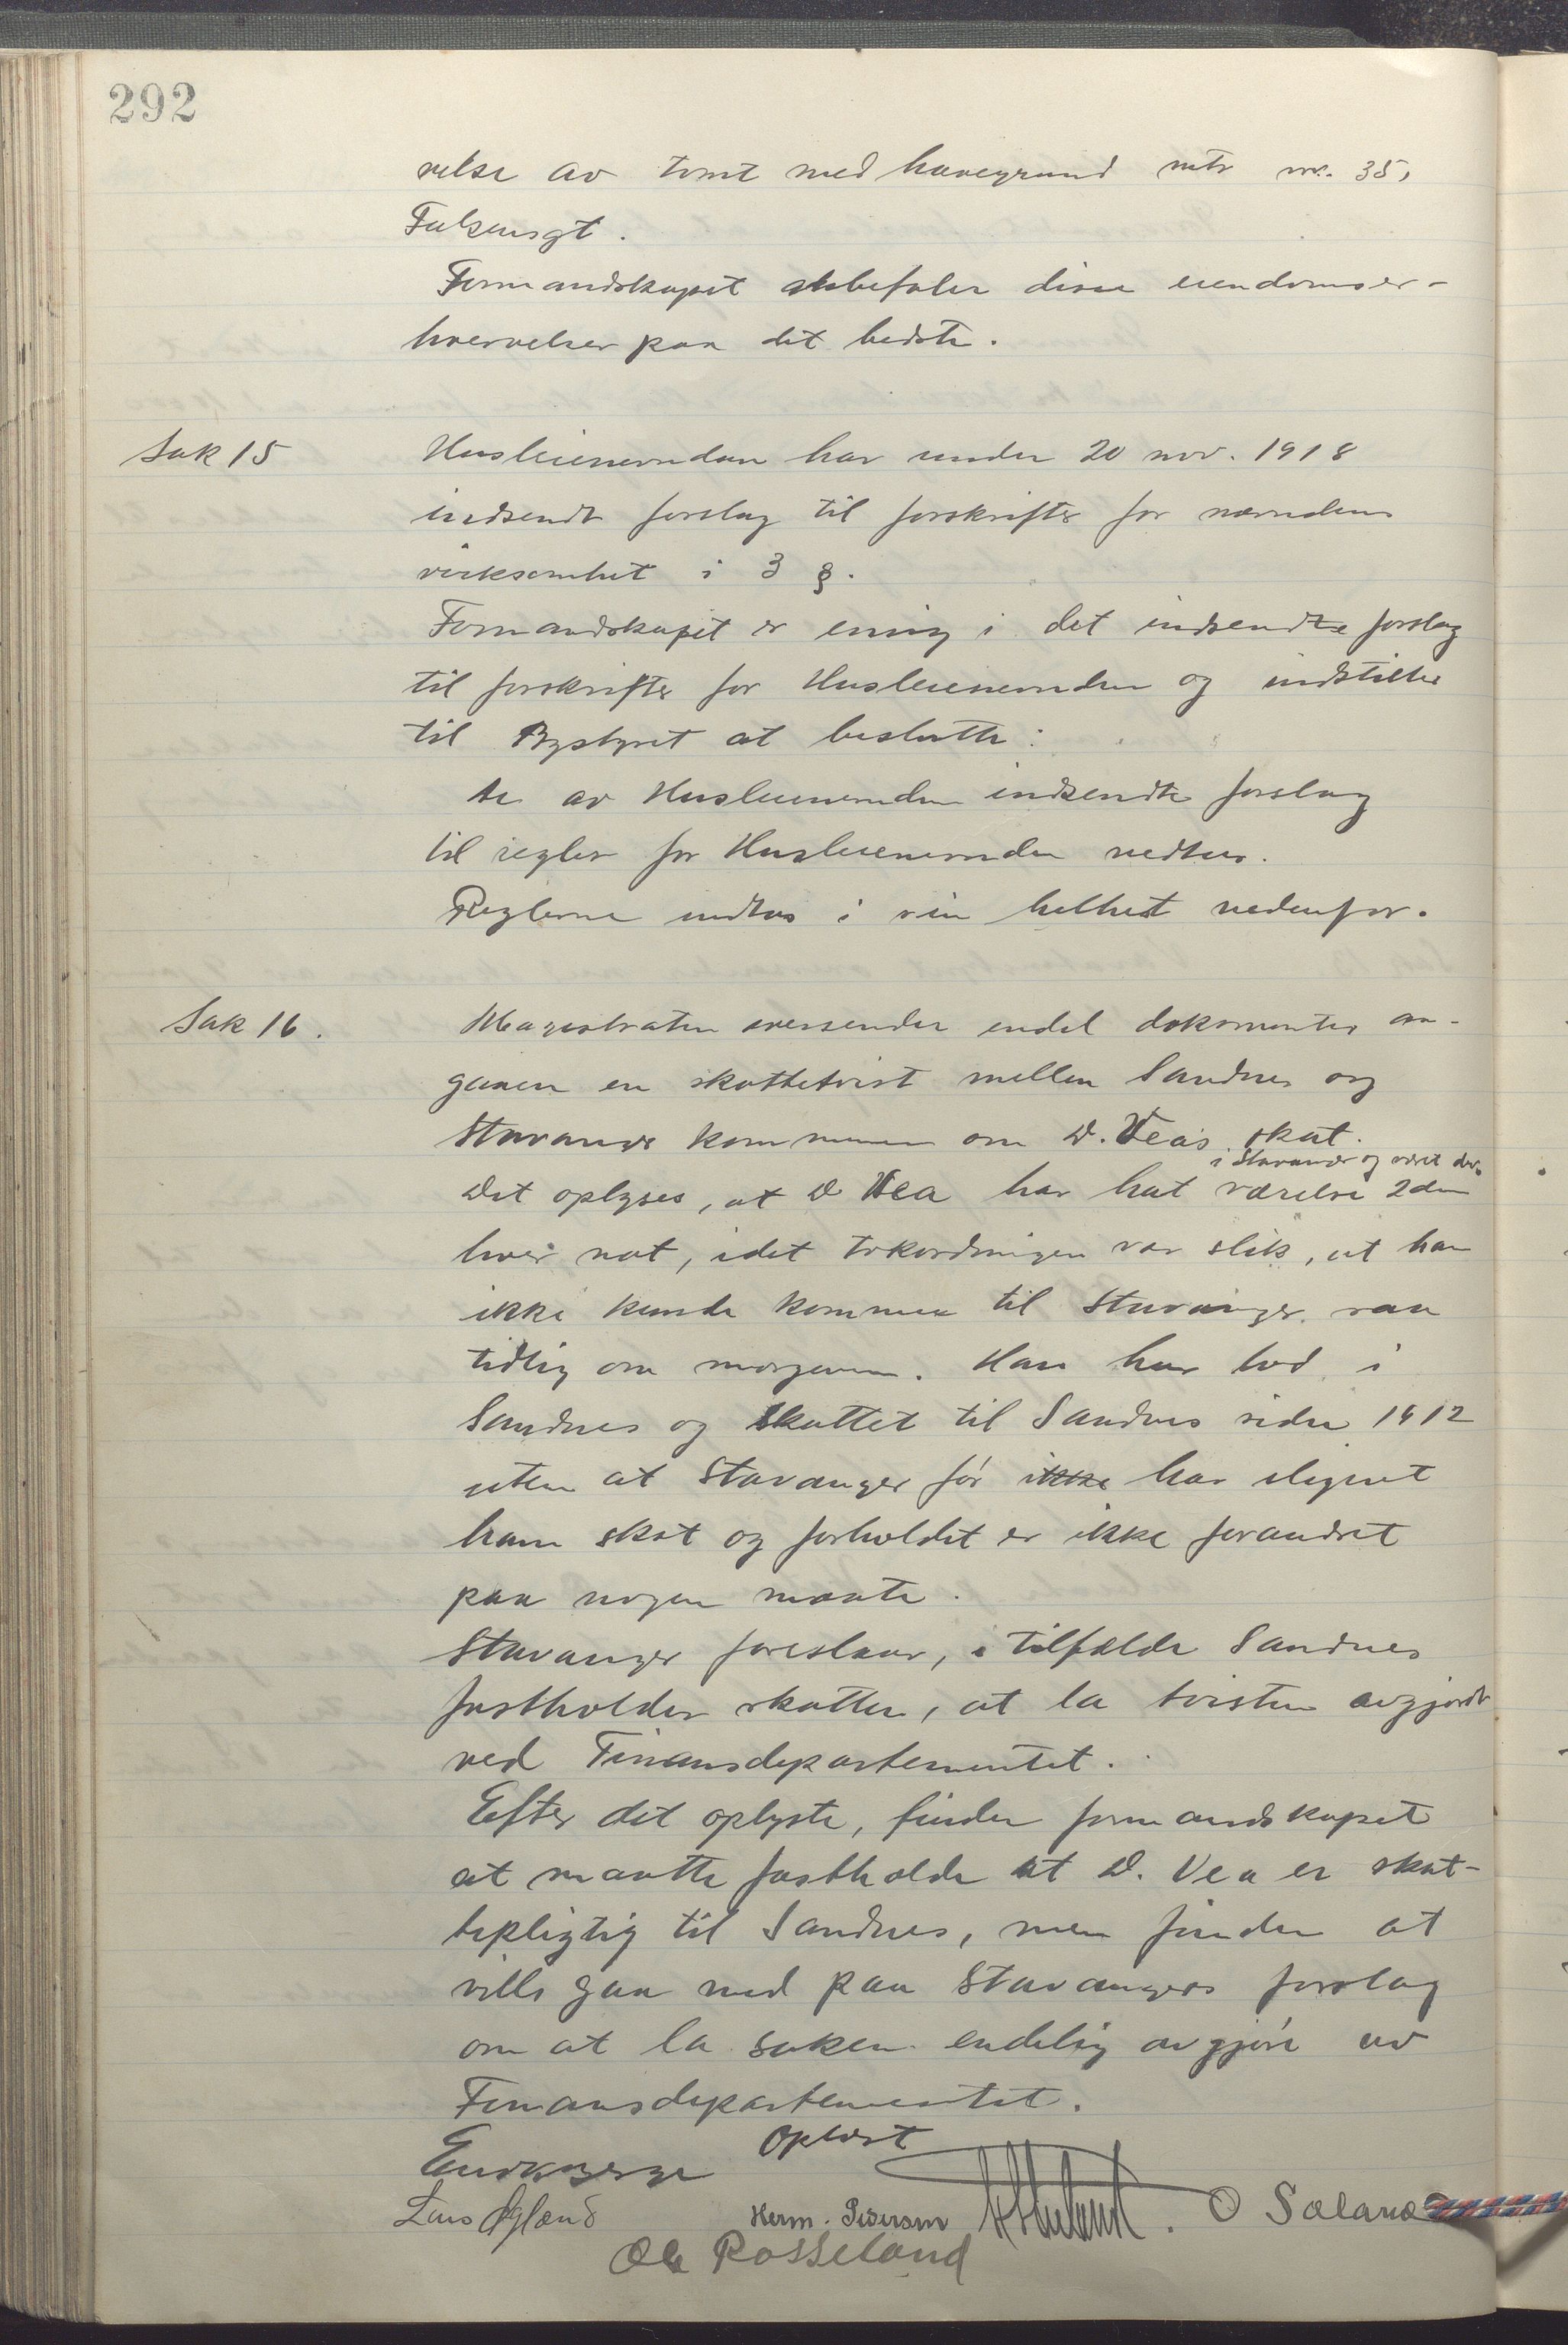 292
velse av tomt med havegrund mtr nr. 35,
Falsensgt.
Formandskapet anbefaler disse eiendomser-
hvervelser paa det bedste.
Sak 15
Husleienevnden har under 20 nov. 1918
indsendt forslag til forskrifter for nævndens
virksomhet i 3 §.
Formandskapet er enig i det indsendte forslag
til forskrifter for Husleienevnden og indstiller
til Bystyret at beslutte:
de av Husleienevnden indsendte forslag
til regler for Husleienevnden vedtas.
Reglerne indtas i sin helhet nedenfor.
Sak 16.
Magistraten oversender endel dokumenter an-
gaaen en skattetvist mellem Sandnes og
Stavanger kommune om D. Vea's skat.
i Stavanger og været der
Det oplyses, at D Vea har hat værelse 2den
hver nat, idet tokordningen var slik, at han
ikke kunde komme til Stavanger saa
tidlig om morgenen. Han har bod i
Sandnes og skattet til Sandnes siden 1912
uten at Stavanger før ikke har ilignet
ham skat og forholdet er ikke forandret
paa nogen maate.
Stavanger foreslaar, i tilfælde Sandnes
fastholder skatten, at la tvisten avgjort
ved Finansdepartementet.
Efter det oplyste, finder formandskapet
at maatte fastholde at D. Vea er skat-
tepligtig til Sandnes, men finder at
ville gaa med paa Stavangers forslag
om at la saken endelig avgjøre av
Finansdepartementet.
Oplæst
Lars Øglænd
Herm. Pedersen
O Sæland
Ole Rosseland